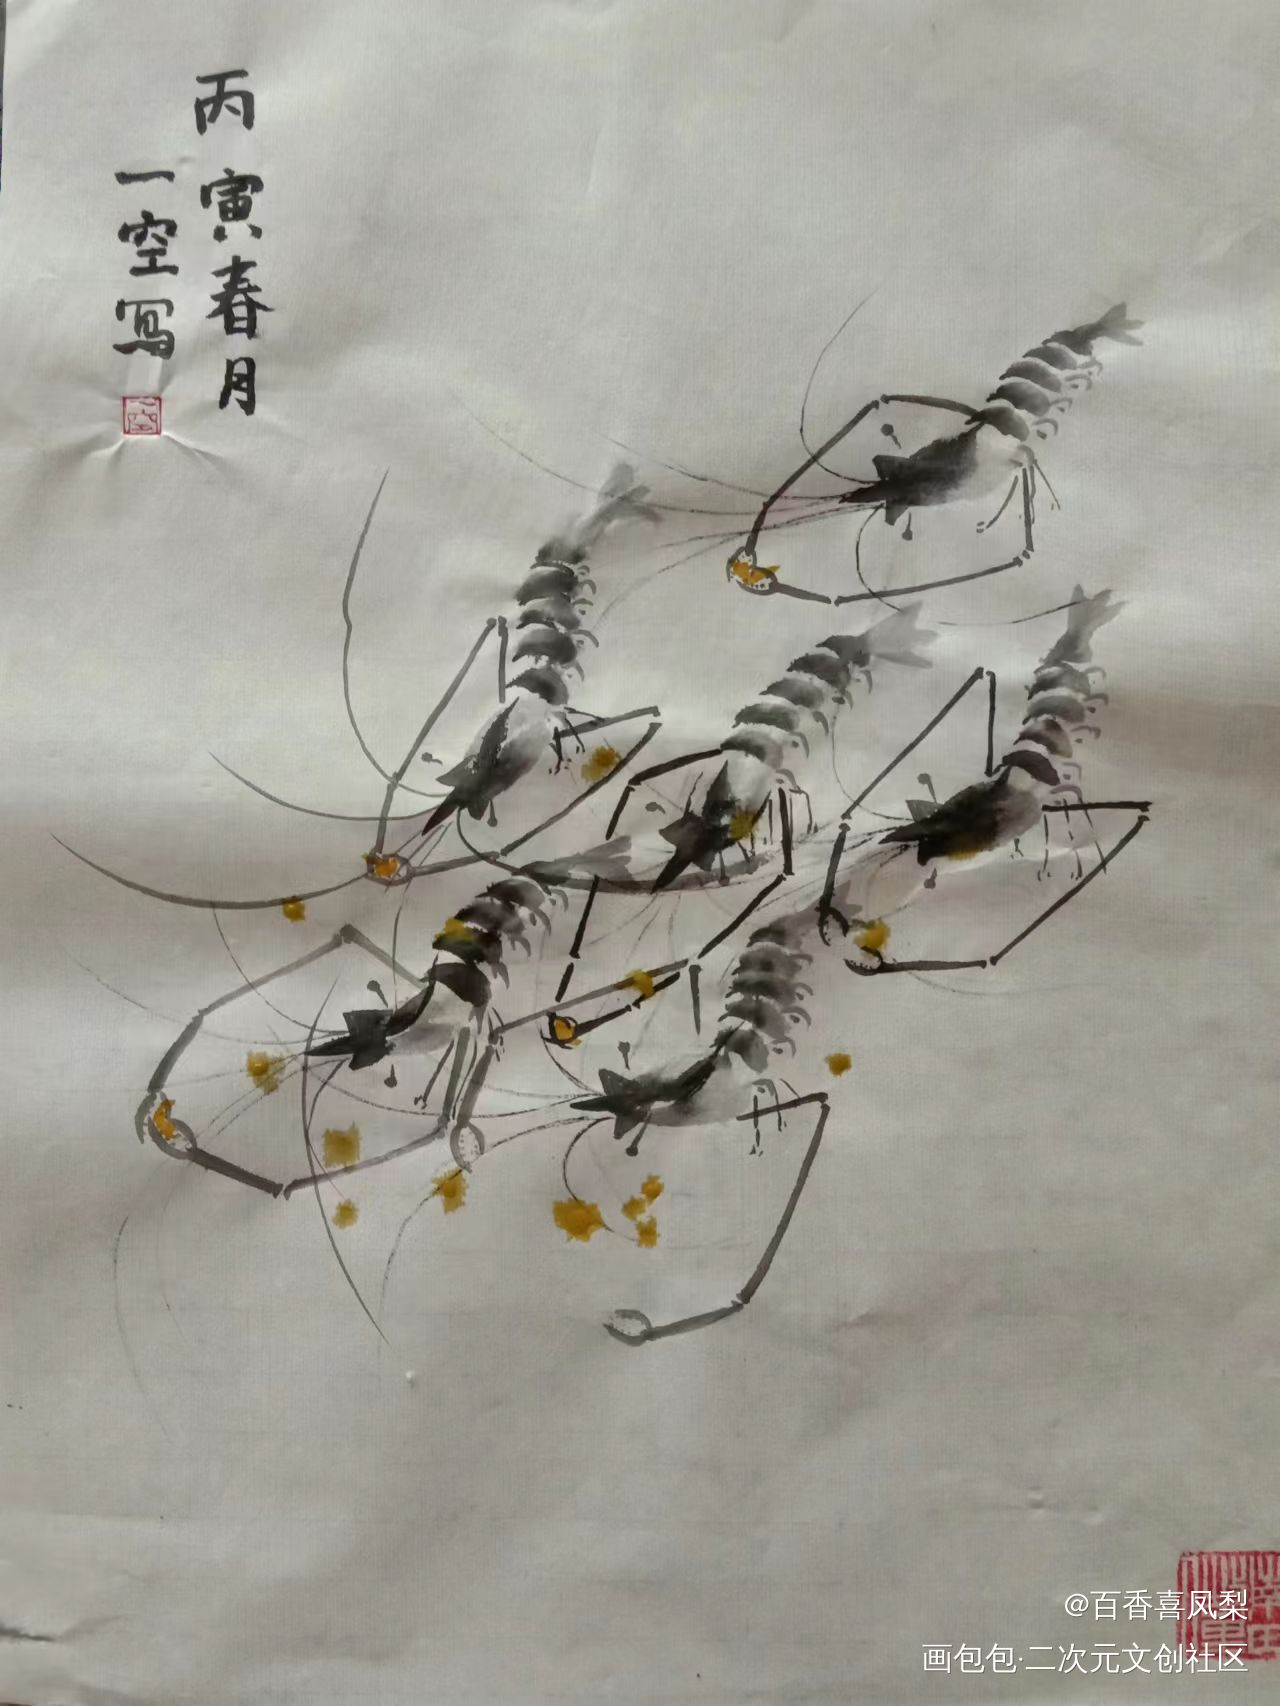 丙寅春月
一空写
一空
@百香喜凤梨
画包包·二次元文创社区